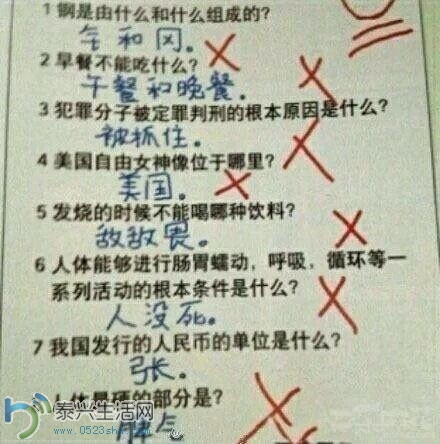 1 钢是由什么和什么组成的?
钅和冈。
2 早餐不能吃什么?
午餐和晚餐。
3 犯罪分子被定罪判刑的根本原因是什么?
被抓住。
4 美国自由女神像位于哪里?
美国。
5 发烧的时候不能喝哪种饮料?
敌敌畏。
6 人体能够进行肠胃蠕动,呼吸,循环等一
系列活动的根本条件是什么?
人没死。
7 我国发行的人民币的单位是什么?
张。
人体最硬的部分是?
脾气
泰兴生活网
www.0523